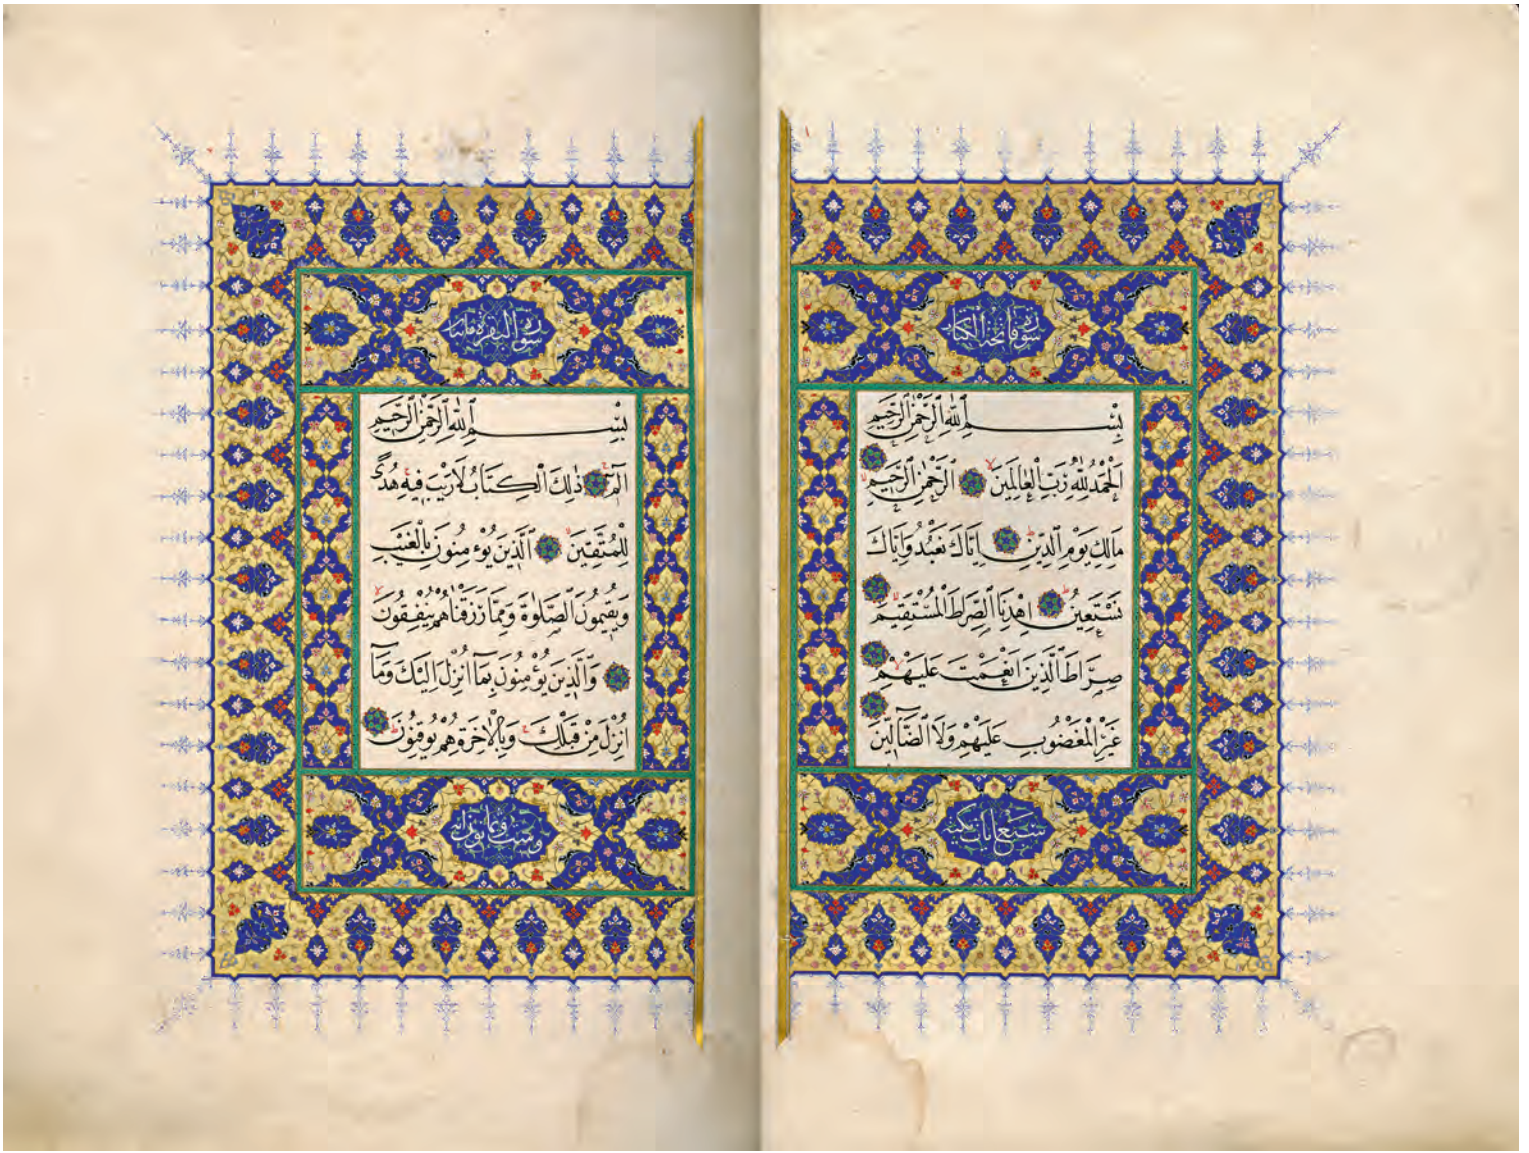 سورة فاتحة الكتاب
بِسْمِ ٱللّٰهِ ٱلرَّحْمٰنِ ٱلرَّحِيمِ
اَلْحَمْدُ لِلّٰهِ رَبِّ ٱلْعَالَمِينَ ٱلرَّحْمٰنِ ٱلرَّحِيمِ
مَالِكِ يَوْمِ ٱلدِّينِ اِيَّاكَ نَعْبُدُ وَاِيَّاكَ
نَسْتَعِينُ اِهْدِنَا ٱلصِّرَاطَ ٱلْمُسْتَقِيمَ
صِرَاطَ ٱلَّذِينَ اَنْعَمْتَ عَلَيْهِمْ
غَيْرِ ٱلْمَغْضُوبِ عَلَيْهِمْ وَلَا ٱلضَّالِّينَ
سبع ايات مكية
سورة البقرة مائتان
بِسْمِ ٱللّٰهِ ٱلرَّحْمٰنِ ٱلرَّحِيمِ
الٓمٓ ذٰلِكَ ٱلْكِتَابُ لَا رَيْبَ فِيهِ هُدًى
لِلْمُتَّقِينَ اَلَّذِينَ يُؤْمِنُونَ بِالْغَيْبِ
وَيُقِيمُونَ ٱلصَّلٰوةَ وَمِمَّا رَزَقْنَاهُمْ يُنْفِقُونَ
وَٱلَّذِينَ يُؤْمِنُونَ بِمَٓا اُنْزِلَ اِلَيْكَ وَمَٓا
اُنْزِلَ مِنْ قَبْلِكَ وَبِالْاٰخِرَةِ هُمْ يُوقِنُونَ
وست وثمانون اية